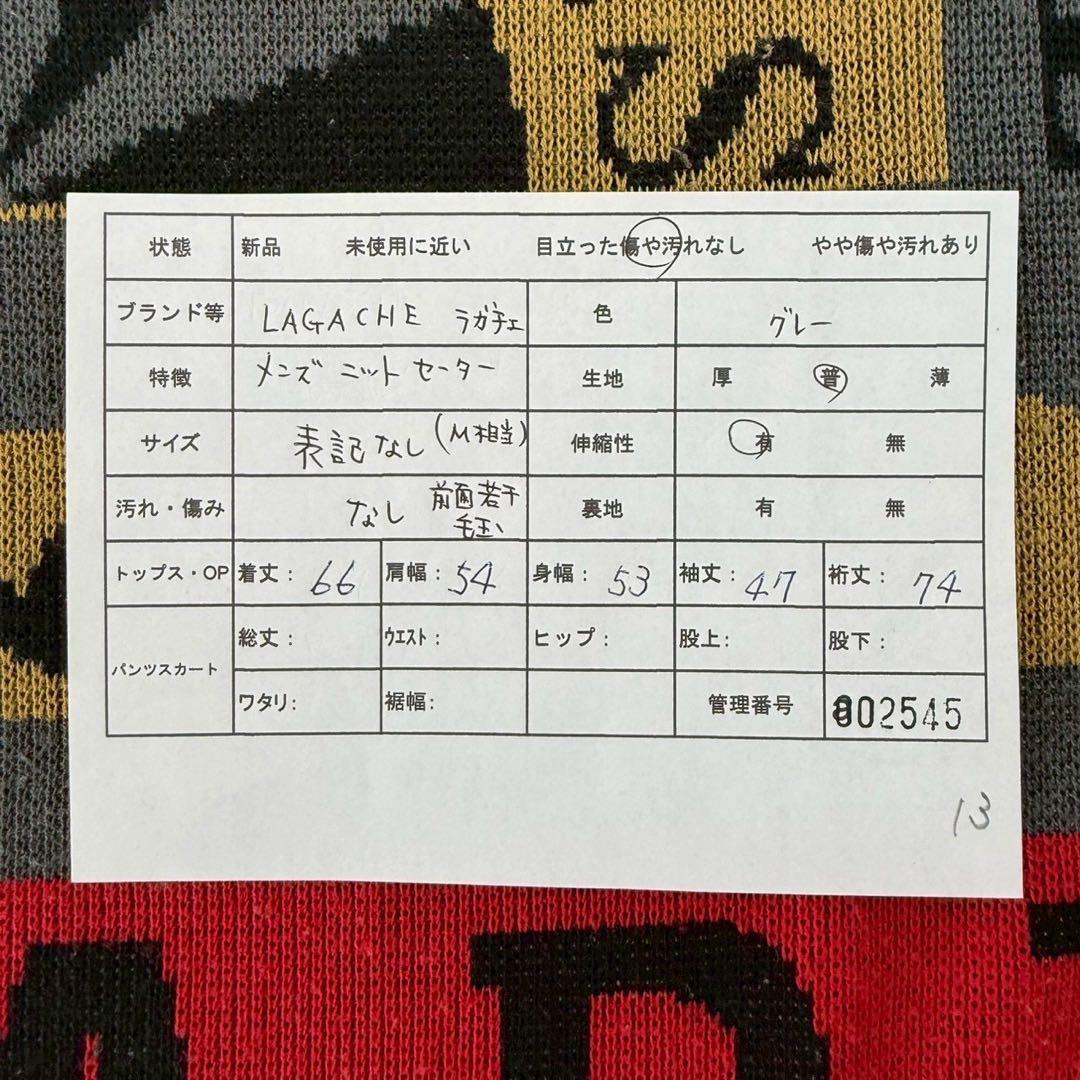 S
状態 新品 未使用に近い 目立った傷や汚れなし やや傷や汚れあり
ブランド等 LAGACHE ラガチェ 色 グレー
特徴 メンズ ニット セーター 生地 厚 普 薄
サイズ 表記なし(M相当) 伸縮性 有 無
汚れ・傷み なし 前面若干毛玉い 裏地 有 無
トップス・OP 着丈: 66 肩幅: 54 身幅: 53 袖丈: 47 裄丈: 74
パンツスカート 総丈: ウエスト: ヒップ: 股上: 股下:
ワタリ: 裾幅: 管理番号 802545
13